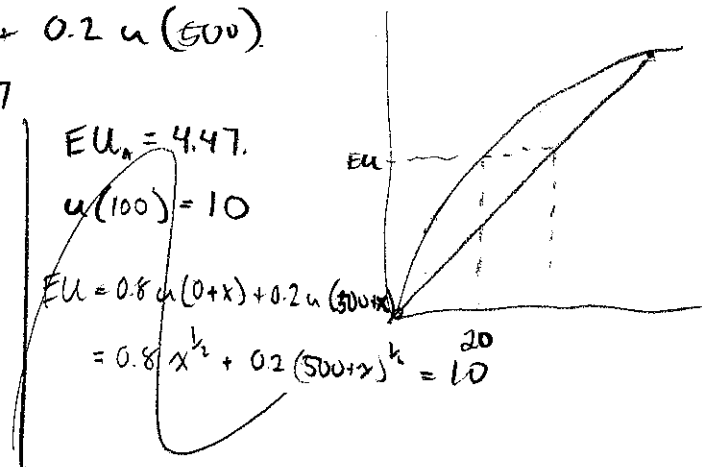 + 0.2 u(500).
7
EU_A = 4.47.
u(100) = 10
EU
EU = 0.8 u(0+x) + 0.2 u(500+x)
= 0.8 x^{1/2} + 0.2 (500+x)^{1/2} = 10
20